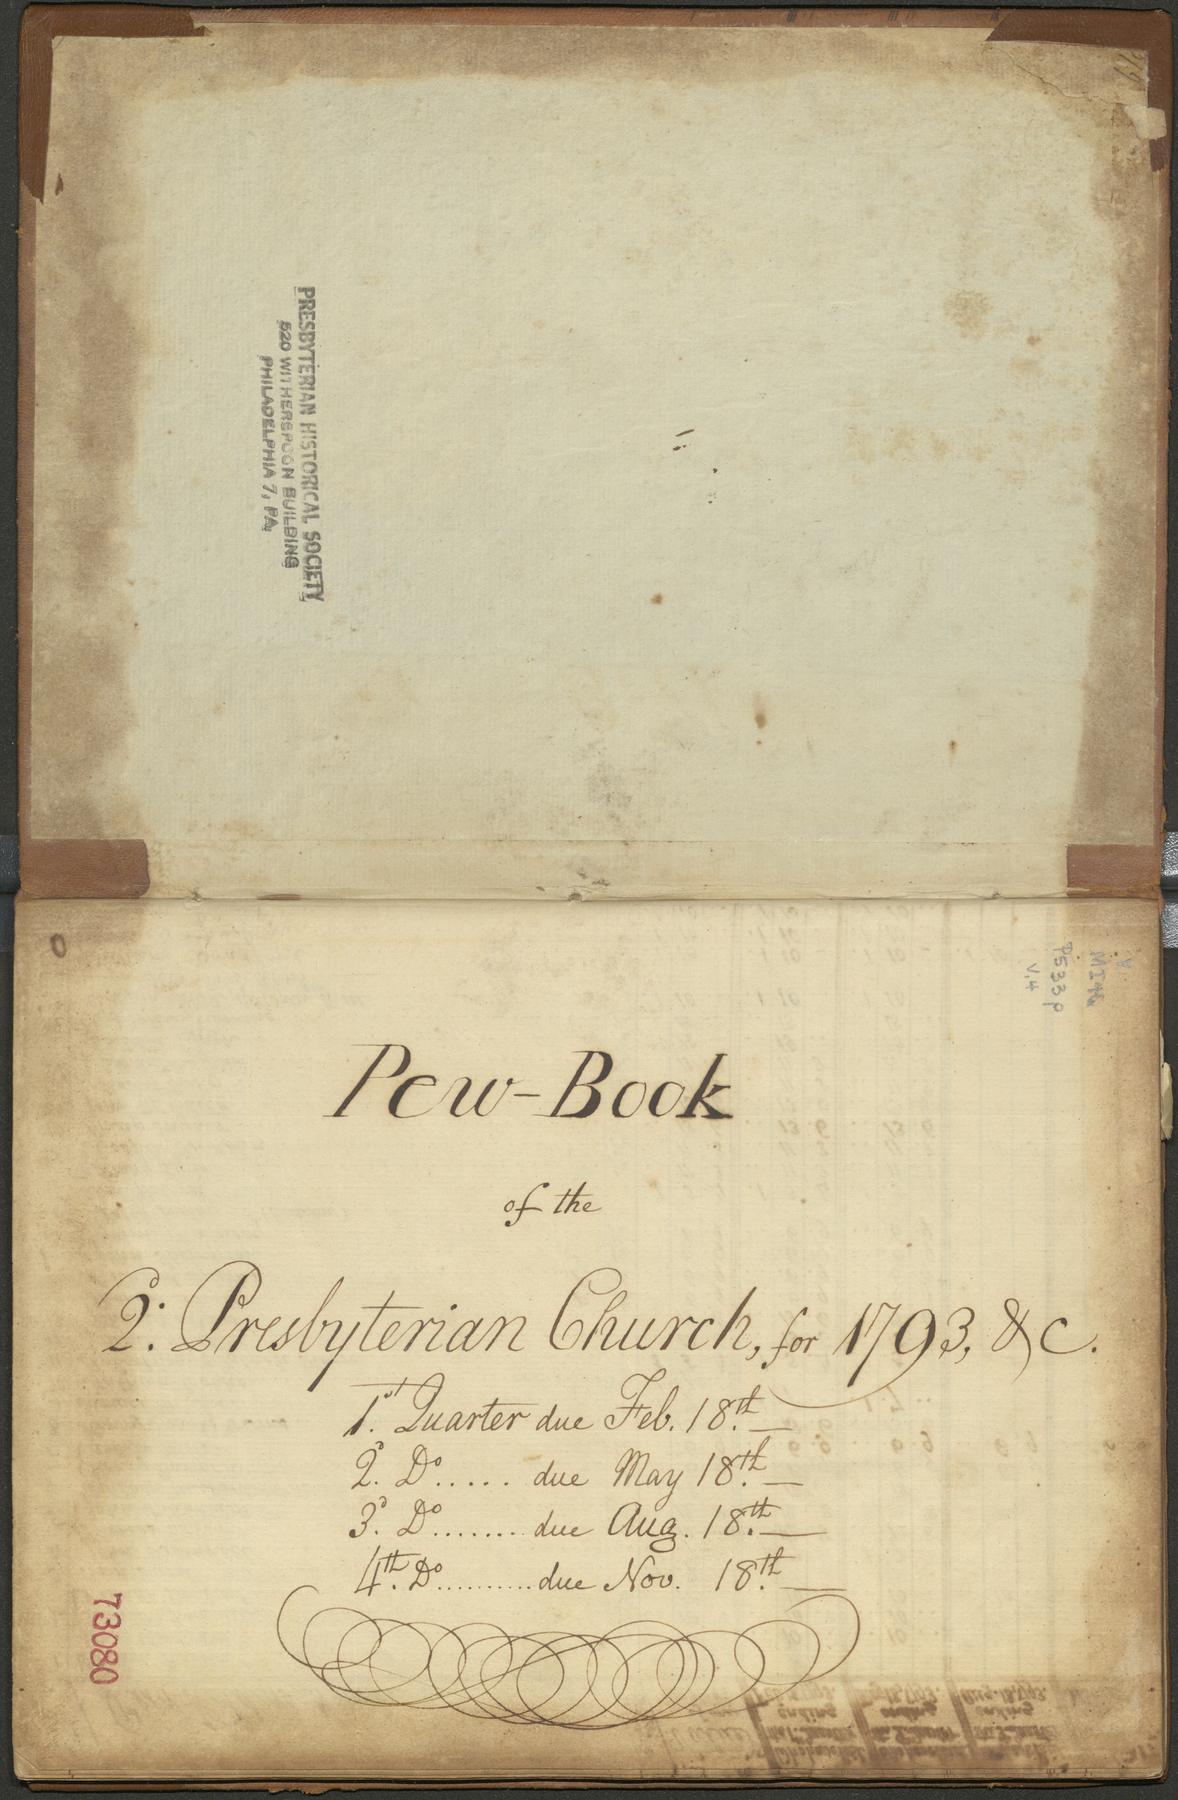 PRESBYTERIAN HISTORICAL SOCIETY
520 WITHERSPOON BUILDING
PHILADELPHIA 7, PA.
0
V
P533p
v.4
Pew-Book
of the
2d. Presbyterian Church, for 1793, &c.
1st. Quarter due Feb. 18th.—
2d. Do..... due May 18th.—
3d. Do....... due Aug. 18th.—
4th. Do.......... due Nov. 18th.—
73080